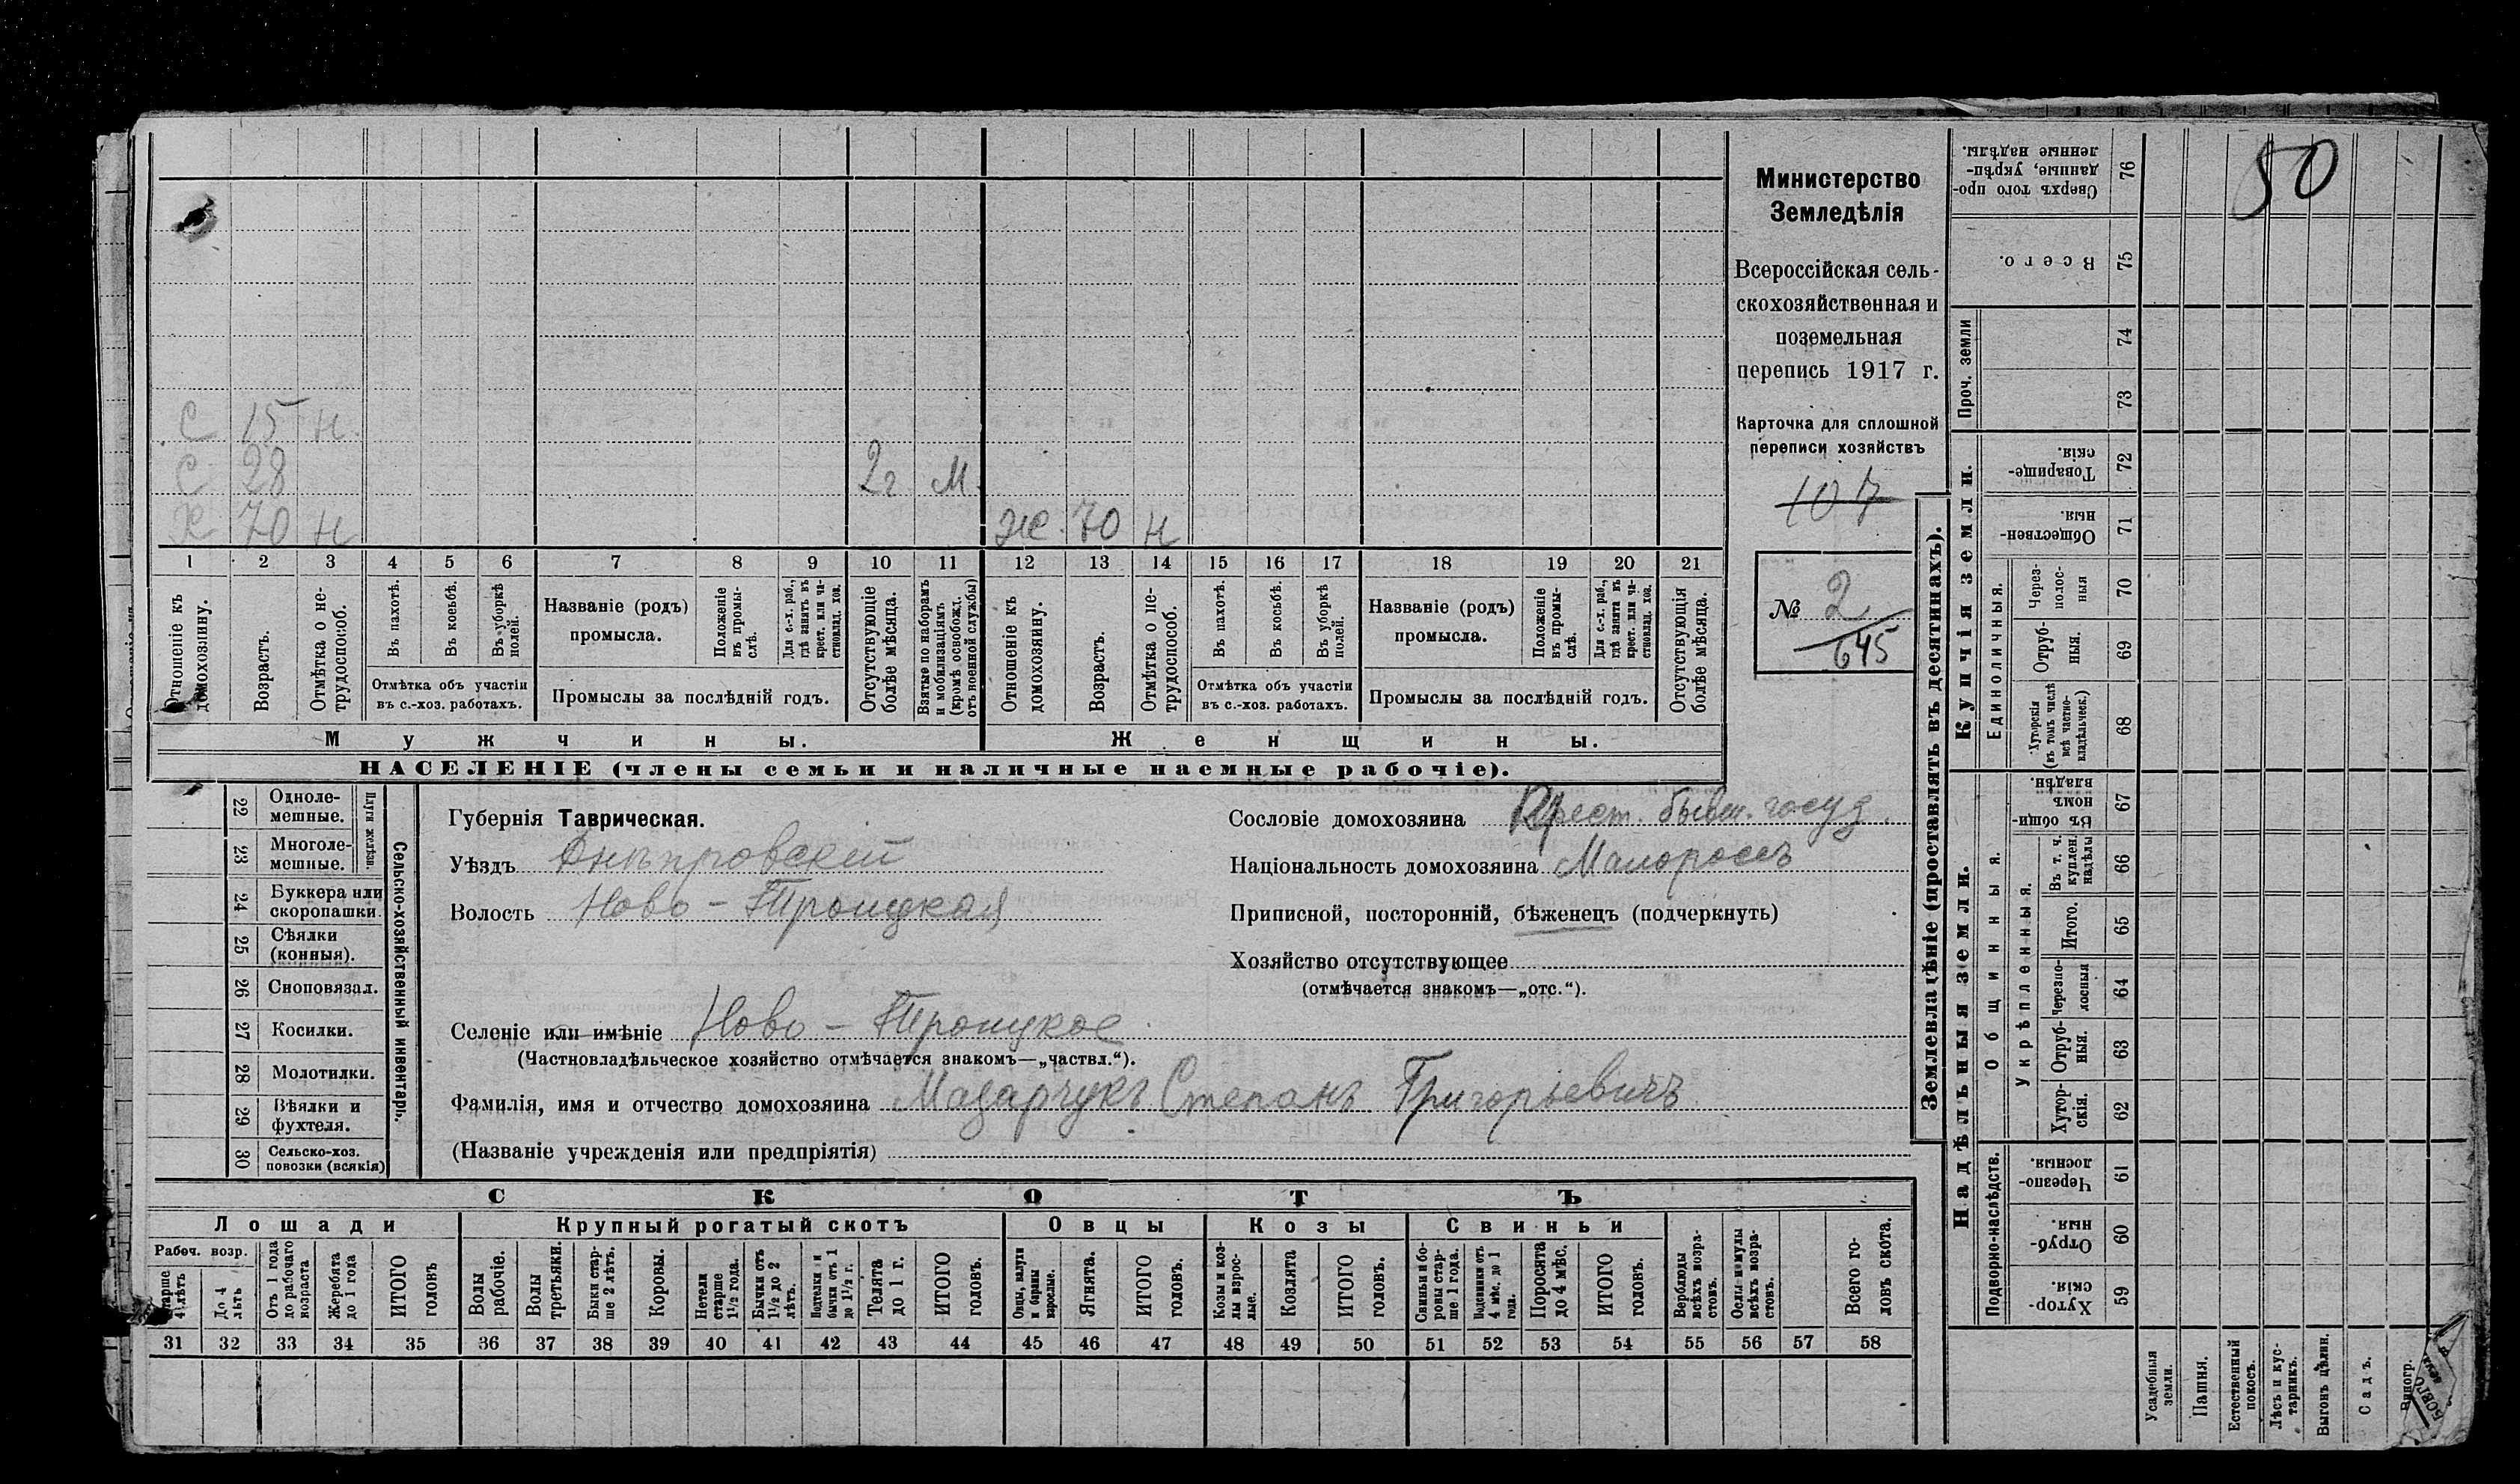 50
Министерство
Земледѣлія
Всероссійская сель-
скохозяйственная и
поземельная
перепись 1917 г.
Карточка для сплошной
переписи хозяйствъ
107
№ 2
645
С 15 н
С 28 2г. М.
Х 70 н Ж. 70 н
1 2 3 4 5 6 7 8 9 10 11 12 13 14 15 16 17 18 19 20 21
Отношеніе къ домохозяину.
Возрастъ.
Отмѣтка о не-трудоспособ.
Въ пахотѣ.
Въ косьбѣ.
Въ уборкѣ полей.
Отмѣтка объ участіи
въ с.-хоз. работахъ.
Названіе (родъ)
промысла.
Положеніе въ промы-слѣ.
Для с.-х. раб., гдѣ занятъ въ крест. или ча-стновлад. хоз.
Промыслы за послѣдній годъ.
Отсутствующіе болѣе мѣсяца.
Взятые по наборамъ и мобилизаціямъ (кромѣ освобожд. отъ военной службы)
Отношеніе къ домохозяину.
Возрастъ.
Отмѣтка о не-трудоспособ.
Въ пахотѣ.
Въ косьбѣ.
Въ уборкѣ полей.
Отмѣтка объ участіи
въ с.-хоз. работахъ.
Названіе (родъ)
промысла.
Положеніе въ промы-слѣ.
Для с.-х. раб., гдѣ занята въ крест. или ча-стновлад. хоз.
Промыслы за послѣдній годъ.
Отсутствующія болѣе мѣсяца.
Мужчины.
Женщины.
НАСЕЛЕНІЕ (члены семьи и наличные наемные рабочіе).
Сельско-хозяйственный инвентарь.
Плуги желѣзн.
22 Одноле-мешные.
23 Многоле-мешные.
24 Буккера или скоропашки.
25 Сѣялки (конныя).
26 Сноповязал.
27 Косилки.
28 Молотилки.
29 Вѣялки и фухтеля.
30 Сельско-хоз. повозки (всякія)
Губернія Таврическая.
Уѣздъ Днѣпровскій
Волость Ново-Троицкая
Селеніе или имѣніе Ново-Троицкое
(Частновладѣльческое хозяйство отмѣчается знакомъ—„частвл.“).
Фамилія, имя и отчество домохозяина Мазарчукъ Степанъ Григорьевичъ
(Названіе учрежденія или предпріятія)
Сословіе домохозяина Крест. бывш. госуд.
Національность домохозяина Малороссъ
Приписной, посторонній, бѣженецъ (подчеркнуть)
Хозяйство отсутствующее
(отмѣчается знакомъ—„отс.“).
СКОТЪ
Лошади
Крупный рогатый скотъ
Овцы
Козы
Свиньи
Рабоч. возр.
старше 4 лѣтъ
До 4 лѣтъ
Отъ 1 года до рабочаго возраста
Жеребята до 1 года
ИТОГО головъ
Волы рабочіе.
Волы третьяки.
Быки стар-ше 2 лѣтъ.
Коровы.
Нетели старше 1½ года.
Бычки отъ 1½ до 2 лѣтъ.
Подтелки и бычки отъ 1 до 1½ г.
Телята до 1 г.
ИТОГО головъ.
Овцы, валухи и бараны взрослые.
Ягнята.
ИТОГО головъ.
Козы и коз-лы взрос-лые.
Козлята
ИТОГО головъ.
Свиньи и бо-ровы стар-ше 1 года.
Подсвинки отъ 4 мѣс. до 1 года.
Поросята до 4 мѣс.
ИТОГО головъ.
Верблюды всѣхъ возра-стовъ.
Ослы и мулы всѣхъ возра-стовъ.
Всего го-ловъ скота.
31 32 33 34 35 36 37 38 39 40 41 42 43 44 45 46 47 48 49 50 51 52 53 54 55 56 57 58
Землевладѣніе (проставлять въ десятинахъ).
Купчія земли.
Надѣльныя земли.
Сверхъ того про-данные, укрѣп-ленные надѣлы. 76
Всего. 75
Проч. земли
74
73
Товарище-скія. 72
Обществен-ныя. 71
Единоличныя.
Через-полос-ныя 70
Отруб-ныя. 69
Хуторскія (въ томъ числѣ всѣ частно-владѣльческ.) 68
Общинныя.
Въ общин-номъ владѣн. 67
Укрѣпленныя.
Въ т. ч. куплен. надѣлы 66
Итого. 65
Черезпо-лосныя 64
Отруб-ныя. 63
Хутор-скія. 62
Подворно-наслѣдств.
Черезпо-лосныя. 61
Отруб-ныя. 60
Хутор-скія. 59
Усадебныя земли.
Пашня.
Естественный покосъ.
Лѣсъ и кус-тарникъ.
Выгонъ цѣлин.
Садъ.
Виногр.